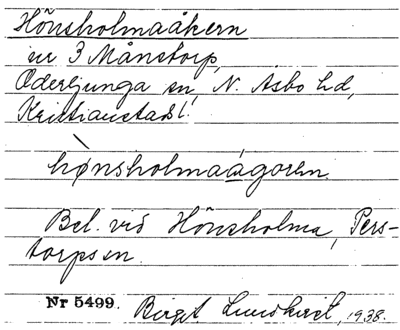 Hönsholmaåkern
nr 3 Månstorp,
Oderljunga sn, N. Åsbo hd,
Kristianstads l.
hø̀nsholmaágoren
Bel. vid Hönsholma, Pers-
torps sn.
Nr 5499. Birgit Lundkvist, 1938.